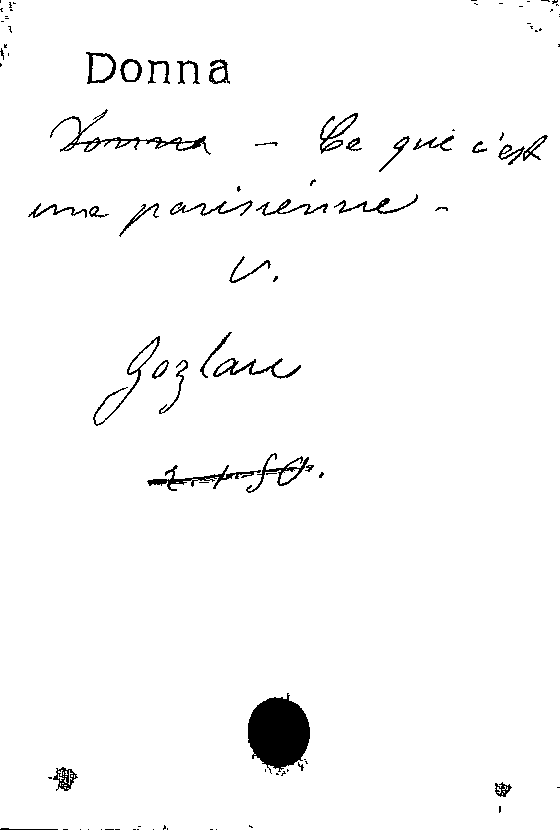 Donna
Donna - Ce que c'est
une parisienne -
V.
Gozlan